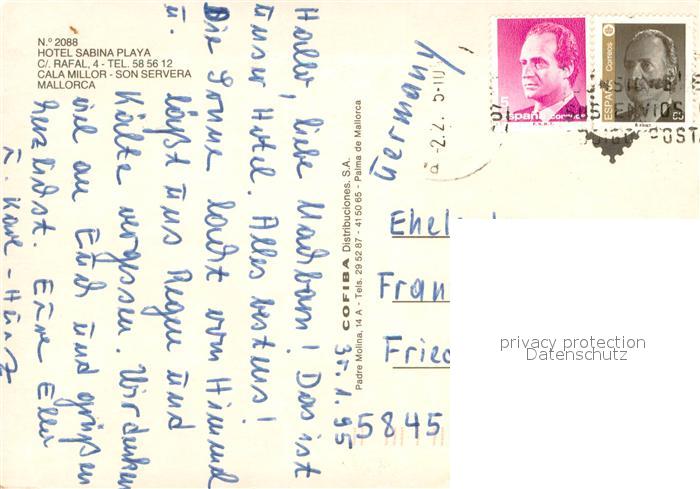 N.º 2088
HOTEL SABINA PLAYA
C/. RAFAL, 4 - TEL. 58 56 12
CALA MILLOR - SON SERVERA
MALLORCA
Hallo, liebe Nachbarn! Das ist
unser Hotel. Alles bestens!
Die Sonne lacht vom Himmel
u. läßt uns Regen und
Kälte vergessen. Wir denken
viel an Euch und grüßen
herzlichst. Eure Ellen
u. Karl-Heinz
31.1.95
COFIBA Distribuciones, S.A.
Padre Molina, 14 A - Tels. 29 52 87 - 41 50 65 - Palma de Mallorca
Germany
5
España correos
ESPAÑA Correos
-2.2.
Ehel
Fran
Fried
5845
privacy protection
Datenschutz